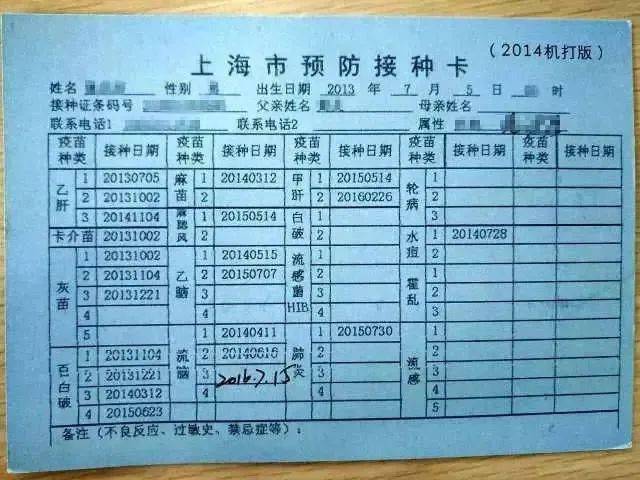 (2014机打版)
上海市预防接种卡
姓名 性别 出生日期 2013 年 7 月 5 日 时
接种证条码号 父亲姓名 母亲姓名
联系电话1 联系电话2 属性
疫苗种类 接种日期 疫苗种类 接种日期 疫苗种类 接种日期 疫苗种类 接种日期
乙肝 1 20130705 麻苗 1 20140312 甲肝 1 20150514 轮病 1
2 20131002 2 2 20160226 2
3 20141104 麻腮风 1 20150514 白破 1 3
卡介苗 20131002 2 2 水痘 1 20140728
灰苗 1 20131002 乙脑 1 20140515 流感菌HIB 1 2
2 20131104 2 20150707 2 霍乱 1
3 20131221 3 3 2
4 4 4 3
5 流脑 1 20140411 肺炎 1 20150730 流感 1
百白破 1 20131104 2 20140616 2 2
2 20131221 3 2016.7.15 3 3
3 20140312 4 4 4
4 20150623 5
备注(不良反应、过敏史、禁忌症等):